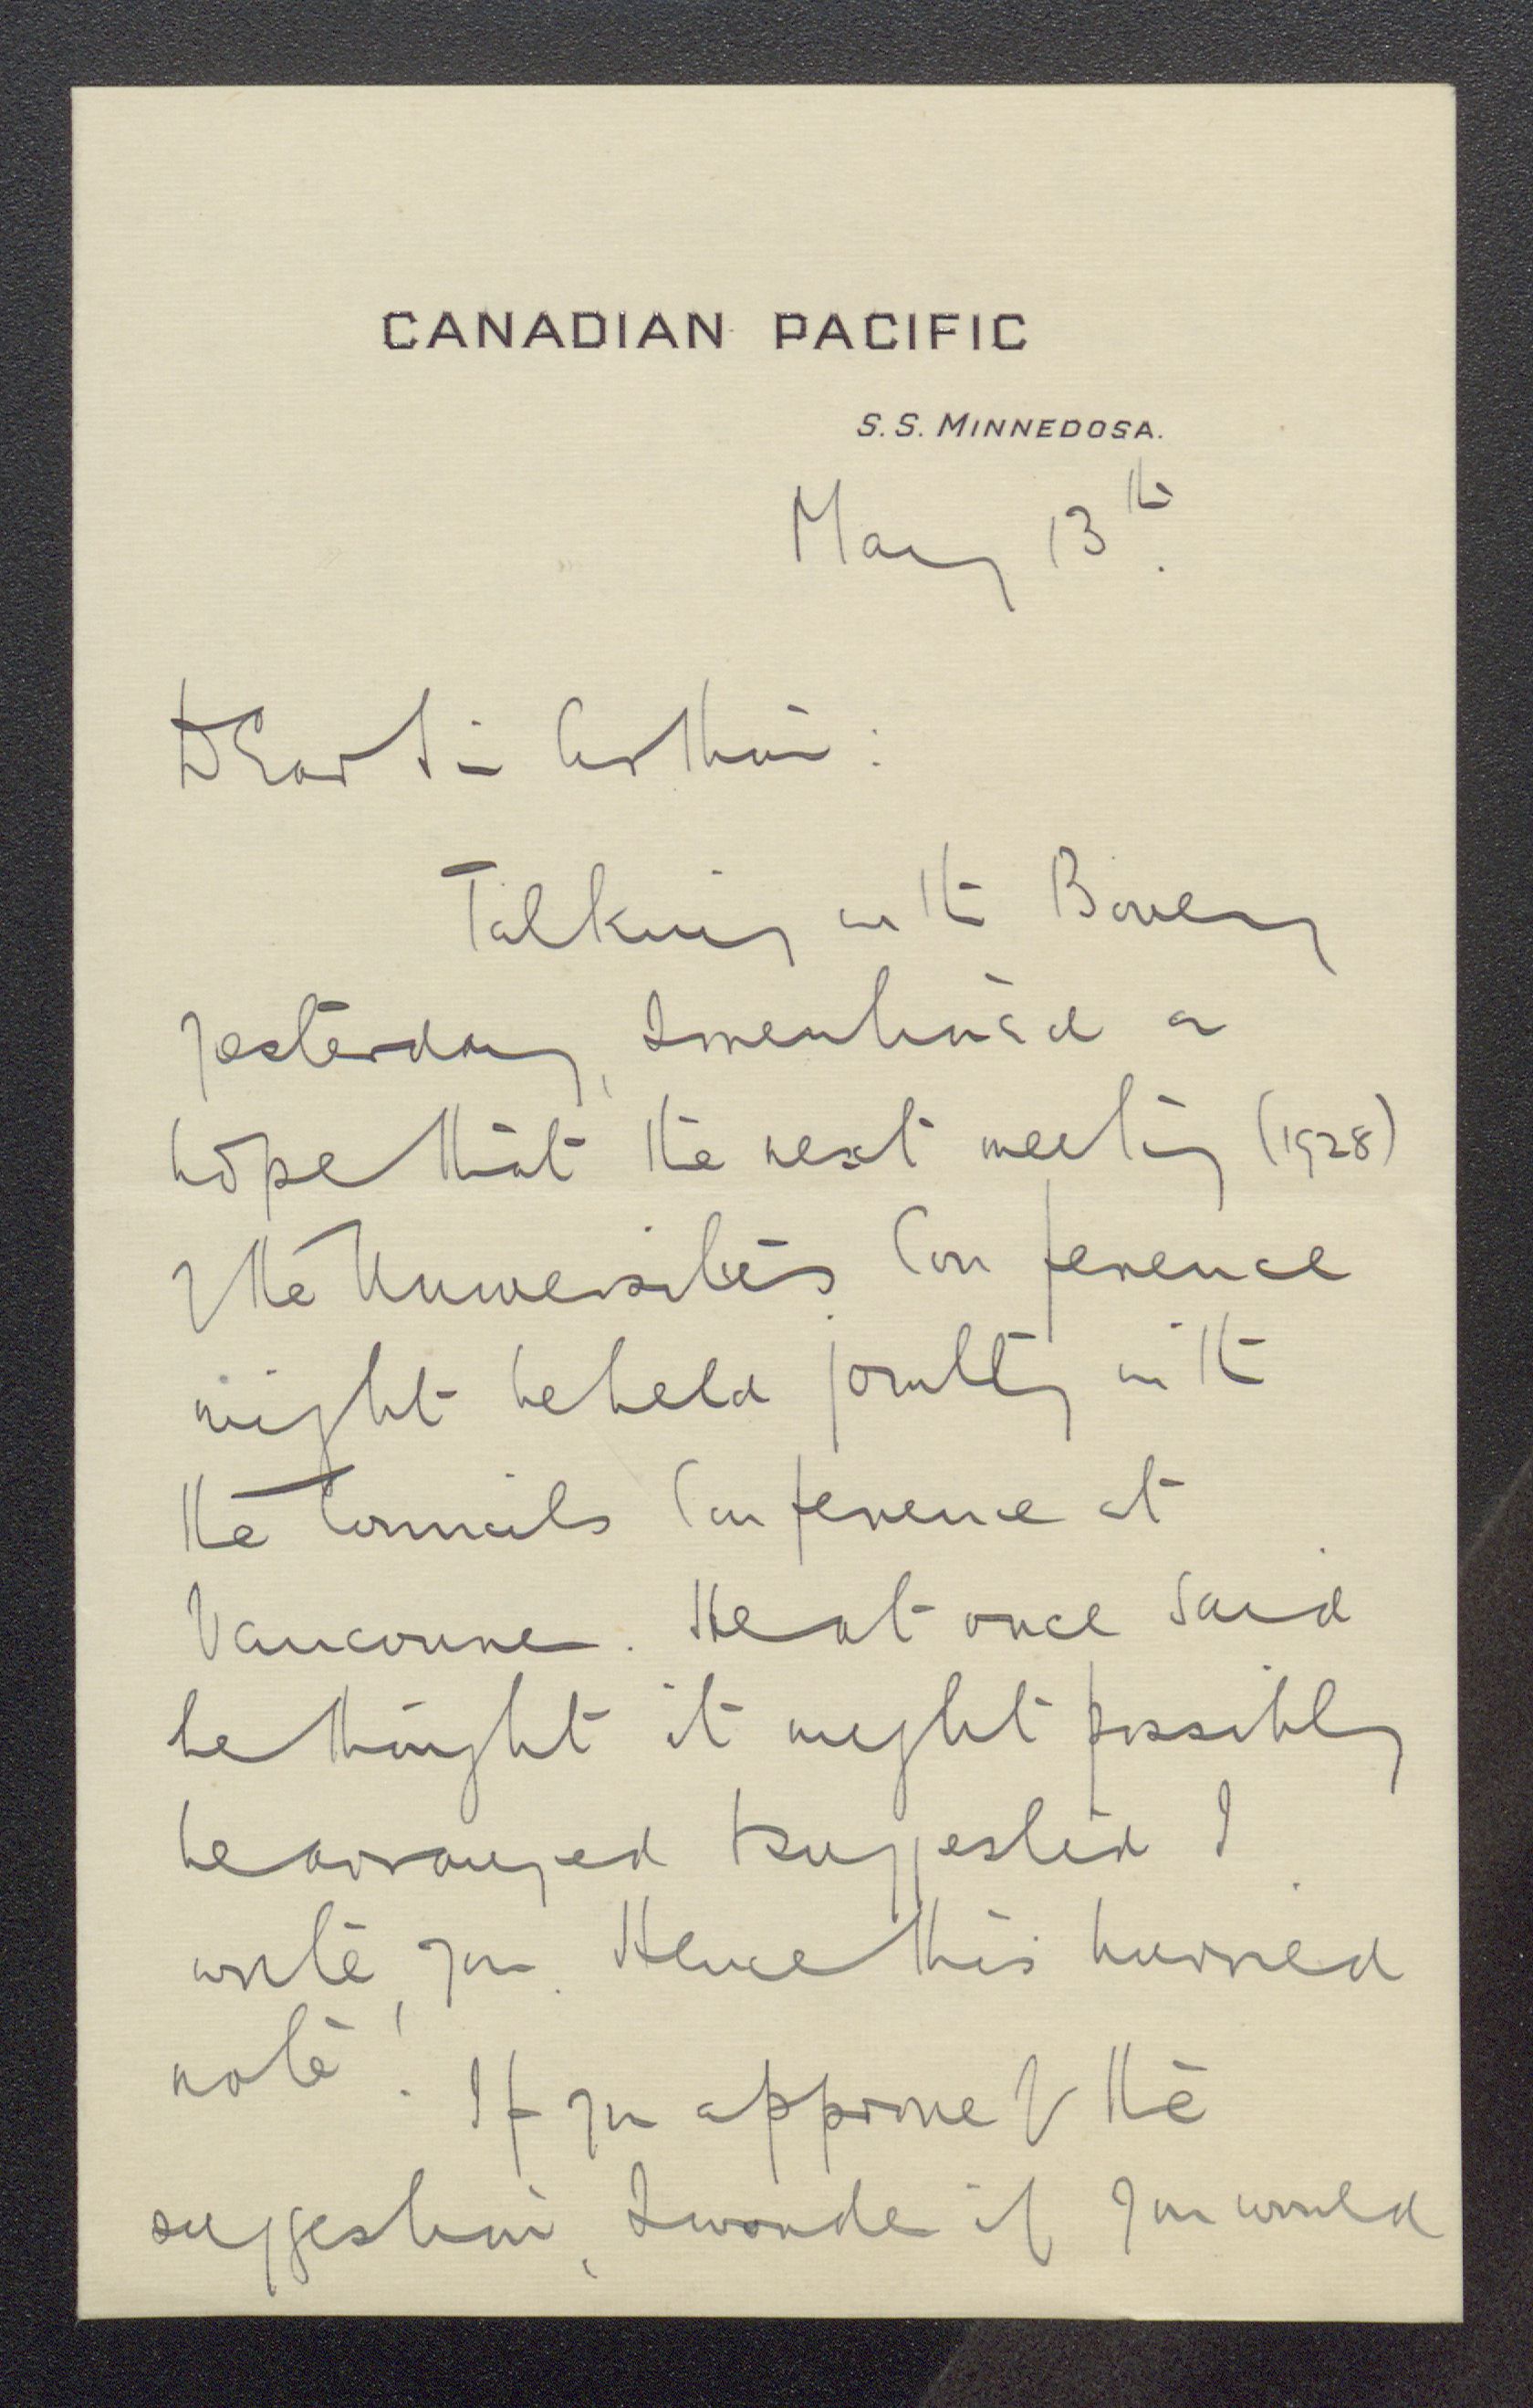 CANADIAN PACIFIC
S.S. MINNEDOSA.
May 13th.
Dear Sir Arthur:
Talking with Bovey
yesterday, I mentioned a
hope that the next meeting (1928)
of the Universities Conference
might be held jointly with
the Councils Conference at
Vancouver. He at once said
he thought it might possibly
be arranged & suggested I
write you. Hence this hurried
note!
If you approve of the
suggestion, I wonder if you would